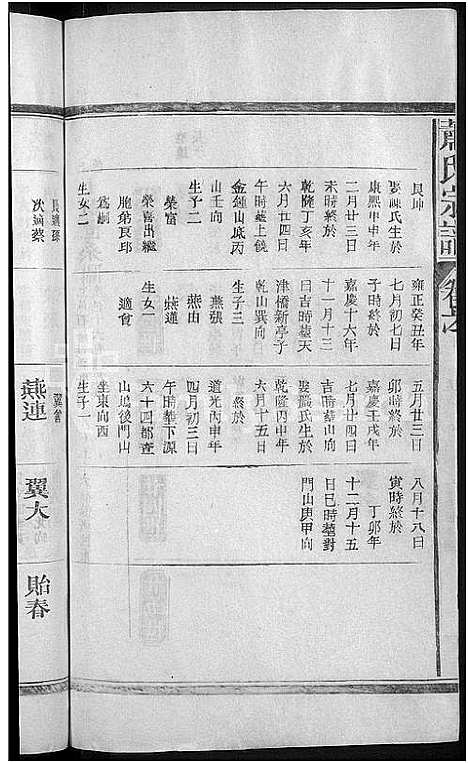 蕭氏宗譜
艮坤
娶陳氏生於
康熙甲申年
二月廿三日
未時終於
乾隆丁亥年
六月廿四日
午時葬上饒
金鐘山底丙
山壬向
生子二
榮富
榮喜出繼
胞弟良邱
為嗣
生女二
長適孫
次適蔡
雍正癸丑年
七月初七日
子時終於
嘉慶十六年
十一月十三
日吉時墓天
津橋新亭子
乾山巽向
生子三
燕張
燕由
燕蓮
生女一
適曾
五月廿三日
卯時終於
嘉慶壬戌年
七月廿四日
吉時葬山向
娶龐氏生於
乾隆丙申年
六月十五日
終於
道光丙申年
四月初三日
午時葬下源
六十四都杳
山塢後門山
坐東向西
生子一
翼會
八月十八日
寅時終於
丁卯年
十二月十五
日巳時塟對
門山庚甲向
燕連
翼大
貽春